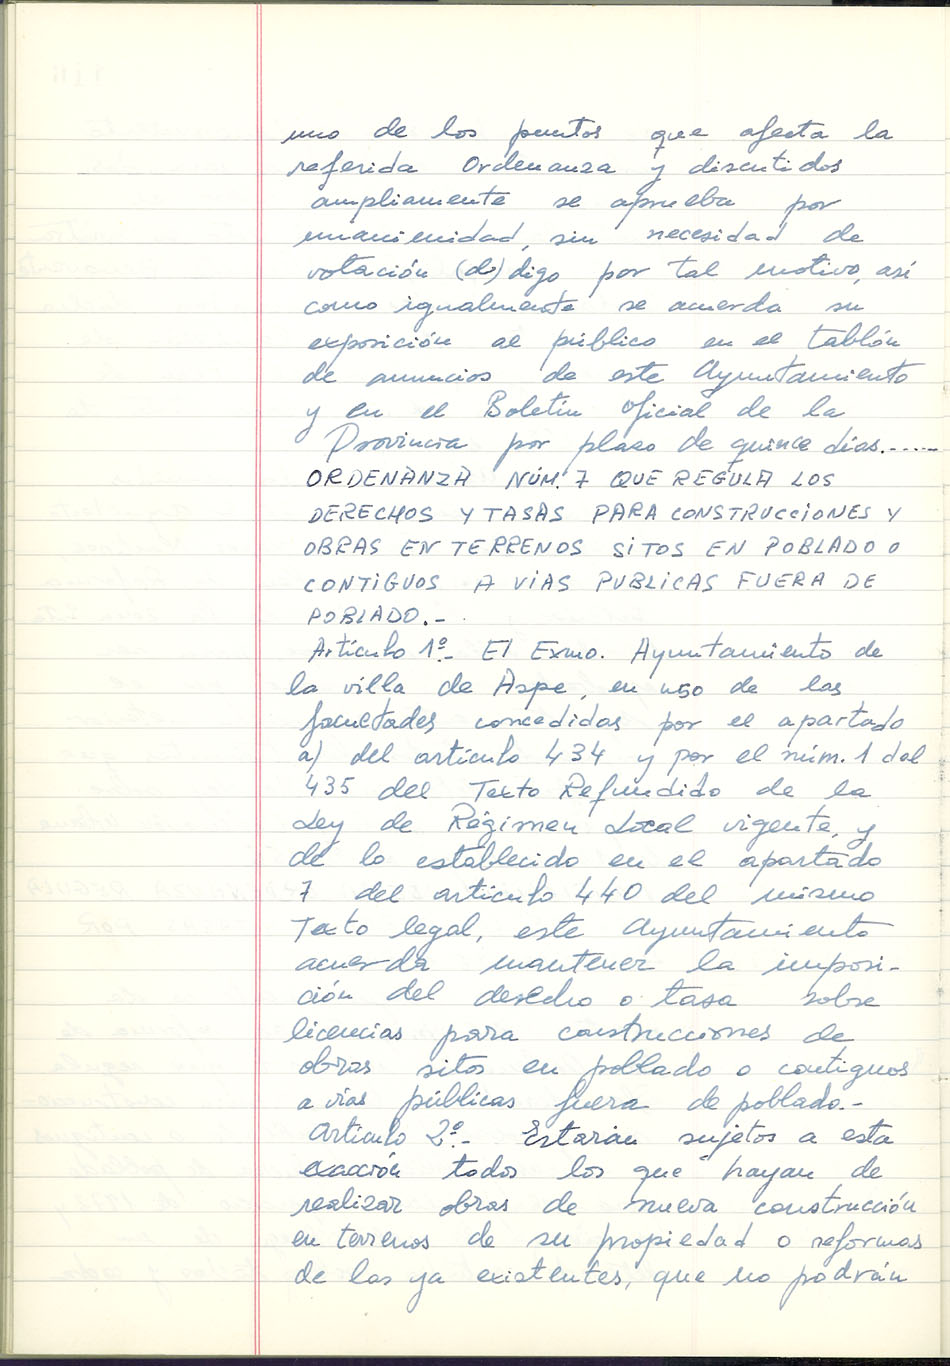 uno de los puntos que afecta la
referida Ordenanza y discutidos
ampliamente se aprueba por
unanimidad, sin necesidad de
votación (d) digo por tal motivo, así
como igualmente se acuerda su
exposición al público en el tablón
de anuncios de este Ayuntamiento
y en el Boletín Oficial de la
Provincia por plazo de quince días.----
ORDENANZA NÚM. 7 QUE REGULA LOS
DERECHOS Y TASAS PARA CONSTRUCCIONES Y
OBRAS EN TERRENOS SITOS EN POBLADO O
CONTIGUOS A VIAS PUBLICAS FUERA DE
POBLADO.-
Artículo 1º.- El Exmo. Ayuntamiento de
la villa de Aspe, en uso de las
facultades concedidas por el apartado
a) del artículo 434 y por el núm. 1 del
435 del Texto Refundido de la
Ley de Régimen Local vigente, y
de lo establecido en el apartado
7 del artículo 440 del mismo
Texto legal, este Ayuntamiento
acuerda mantener la imposi-
ción del derecho o tasa sobre
licencias para construcciones de
obras sitos en poblado o contiguos
a vías públicas fuera de poblado.-
Artículo 2º.- Estarán sujetos a esta
exacción todos los que hayan de
realizar obras de nueva construcción
en terrenos de su propiedad o reformas
de las ya existentes, que no podrán